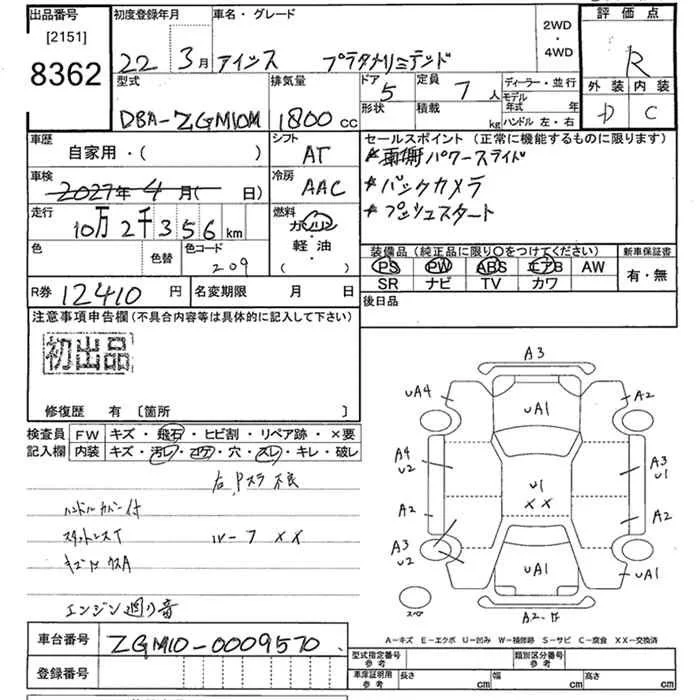 出品番号
[2151]
8362
初度登録年月
22 3月
車名・グレード
アイシス プラタナリミテッド
2WD
・
4WD
評価点
R
外装 内装
D C
型式
DBA-ZGM10W
排気量
1800 cc
ドア
5
形状
定員
7 人
積載
kg
ディーラー・並行
モデル
年式 年
ハンドル 左・右
車歴
自家用・( )
シフト
AT
車検
2027年 4月( 日)
冷房
AAC
走行
10万2千356 km
燃料
ガソリン
・
軽油
・
( )
色
色替
色コード
209
セールスポイント (正常に機能するものに限ります)
★両側パワースライド
★バックカメラ
★プッシュスタート
装備品 (純正品に限り○をつけてください)
PS PW ABS エアB AW
SR ナビ TV カワ
新車保証書
有・無
R券 12410 円
名変期限 月 日
後日品
注意事項申告欄 (不具合内容等は具体的に記入して下さい)
初出品
修復歴 有 [箇所 ]
検査員
記入欄
FW キズ・飛石・ヒビ割・リペア跡・×要
内装 キズ・汚レ・コゲ・穴・スレ・キレ・破レ
右Pスラ不良
ハンドルカバー付
スタットレスT
ルーフ XX
エンジン廻り音
A3
UA4
A2
UA1
A4
U2
A3
U1
U1
XX
A2
A2
A3
U2
UA1
UA1
スペア
A2
A-キズ E-エクボ U-凹み W-補修跡 S-サビ C-腐食 XX-交換済
車台番号
ZGM10-0009570
登録番号
型式指定番号
参考
類別区分番号
参考
車庫証明用
参考
長さ cm
幅 cm
高さ cm